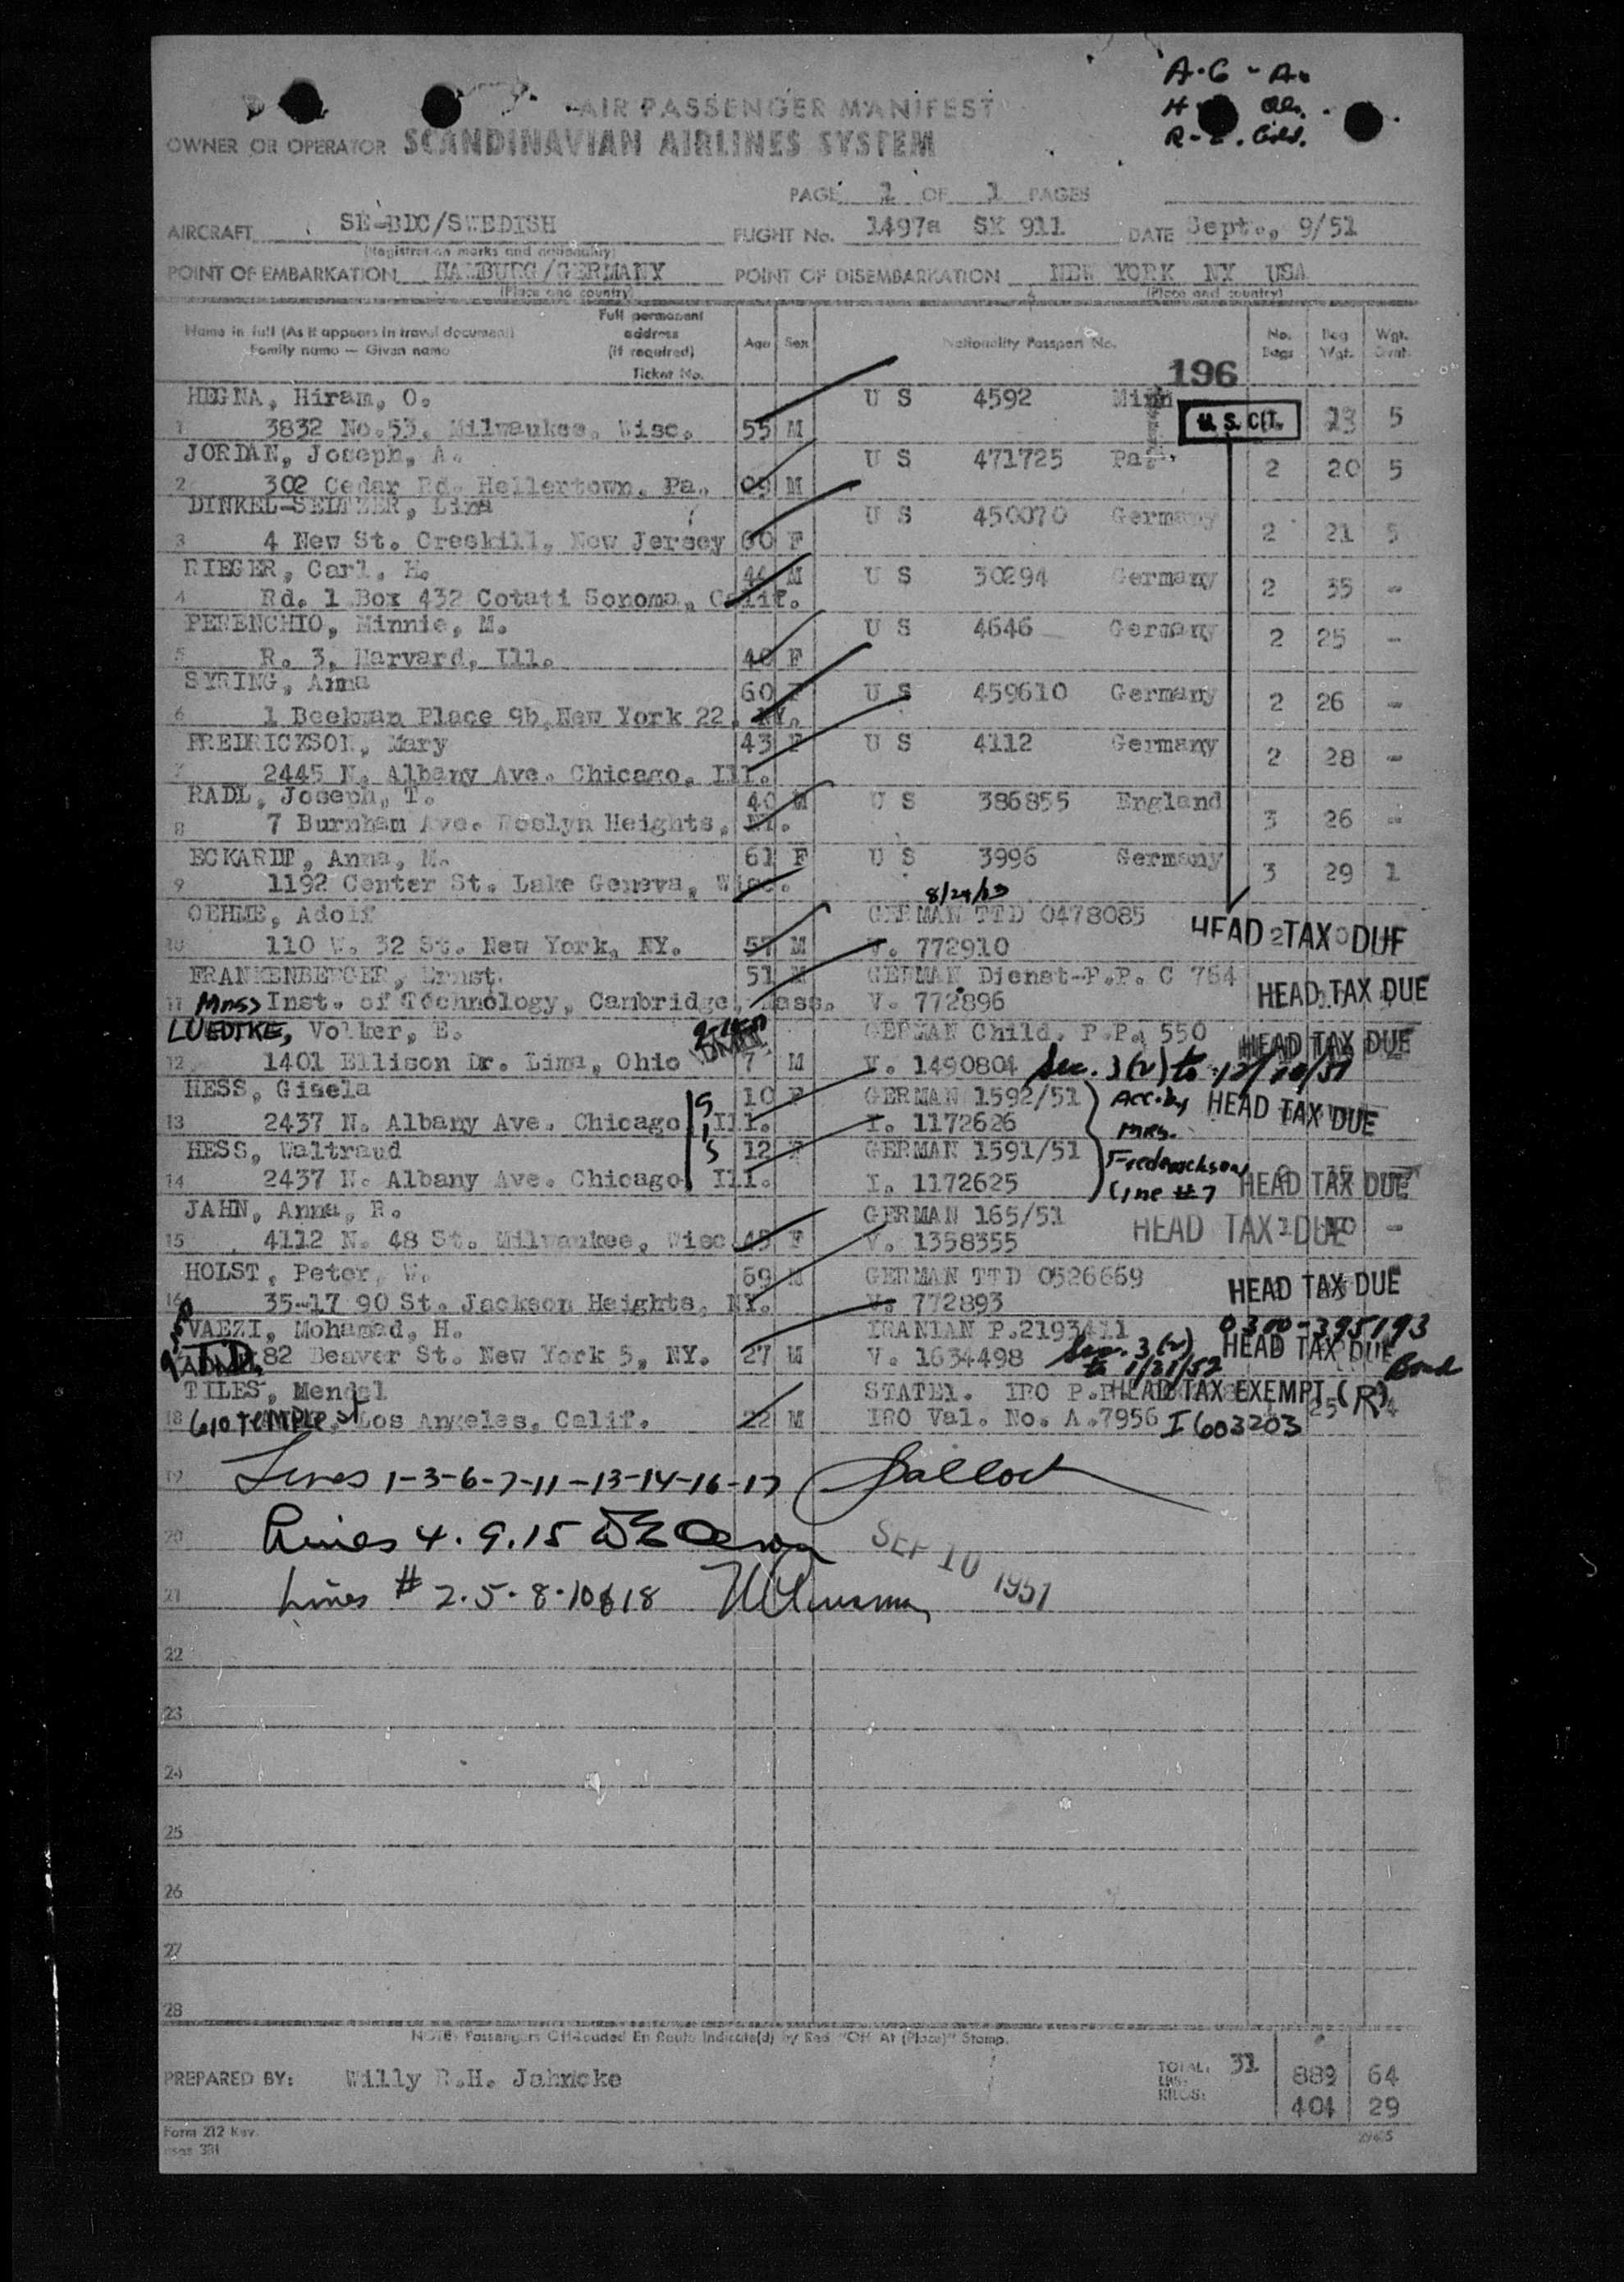 A.G - A.
H
R-
AIR PASSENGER MANIFEST
OWNER OR OPERATOR SCANDINAVIAN AIRLINES SYSTEM
PAGE 1 OF 1 PAGES
AIRCRAFT SE-BDC/SWEDISH FLIGHT No. 1497a SK 911 DATE Sept., 9/51
(Registration marks and nationality)
POINT OF EMBARKATION HAMBURG/GERMANY POINT OF DISEMBARKATION NEW YORK NY USA
(Place and country) (Place and country)
Name in full (As it appears in travel document) Family name — Given name Full permanent address (if required) Ticket No. Age Sex Nationality Passport No. No. Bags Bag Wgt. Wgt. Ovnt.
196
HEGNA, Hiram, O. U S 4592 Minn
1 3832 No.53. Milwaukee, Wisc. 55 M U.S. CIT. 23 5
JORDAN, Joseph, A. U S 471725 Pa.
2 302 Cedar Rd. Hellertown, Pa. M 2 20 5
DINKEL-SELTZER, Lina U S 450070 Germany
3 4 New St. Creskill, New Jersey 60 F 2 21 5
RIEGER, Carl, H. 44 M U S 30294 Germany
4 Rd. 1 Box 432 Cotati Sonoma, Calif. 2 35 -
PERENCHIO, Minnie, M. U S 4646 Germany
5 R. 3, Harvard, Ill. 40 F 2 25 -
SYRING, Anna 60 F U S 459610 Germany
6 1 Beekman Place 9b, New York 22. NY. 2 26 -
FREDRICKSON, Mary 43 F U S 4112 Germany
7 2445 N. Albany Ave. Chicago, Ill. 2 28 -
RADL, Joseph, T. 40 M U S 386855 England
8 7 Burnham Ave. Roslyn Heights, NY. 3 26 -
ECKARDT, Anna, M. 61 F U S 3996 Germany
9 1192 Center St. Lake Geneva, Wisc. 3 29 1
8/24/53
OEHME, Adolf GERMAN TTD 0478085 HEAD TAX DUE
10 110 W. 32 St. New York, NY. 57 M V. 772910
FRANKENBERGER, Ernst. 51 M GERMAN Dienst-P.P. C 764 HEAD TAX DUE
11 Mass Inst. of Technology, Cambridge, Mass. V. 772896
LUEDTKE, Volker, E. GERMAN Child. P.P. 550 HEAD TAX DUE
12 1401 Ellison Dr. Lima, Ohio 7 M V. 1490804 Sec. 3(2) to
HESS, Gisela 10 F GERMAN 1592/51 Acc. by HEAD TAX DUE
13 2437 N. Albany Ave. Chicago, Ill. I. 1172626 Mrs.
HESS, Waltraud 12 F GERMAN 1591/51 Frederickson
14 2437 N. Albany Ave. Chicago, Ill. I. 1172625 Line #7 HEAD TAX DUE
JAHN, Anna, R. GERMAN 165/51 HEAD TAX DUE -
15 4112 N. 48 St. Milwaukee, Wisc 45 F V. 1358355
HOLST, Peter, W. 69 M GERMAN TTD 0526669 HEAD TAX DUE
16 35-17 90 St. Jackson Heights, NY. V. 772893
VAEZI, Mohamad, H. IRANIAN P.2193411 0300-395193
82 Beaver St. New York 5, NY. 27 M V. 1634498 Sec. 3(2) to 1/21/52 HEAD TAX DUE Bond
TILES, Mendel STATEl. IRO P.P. HEAD TAX EXEMPT (R)
18 610 TEMPLE St Los Angeles, Calif. 22 M IRO Val. No. A.7956 I 603203 25 4
19 Lines 1-3-6-7-11-13-14-16-17
20 Lines 4.9.15 SEP 10 1951
21 Lines # 2.5.8.10&18
22
23
24
25
26
27
28
NOTE: Passengers Off-loaded En Route Indicate(d) by Red "Off At (Place)" Stamp.
PREPARED BY: Willy R.H. Jahncke TOTAL: 31
LBS: 889 64
KILOS: 404 29
Form 212 Rev.